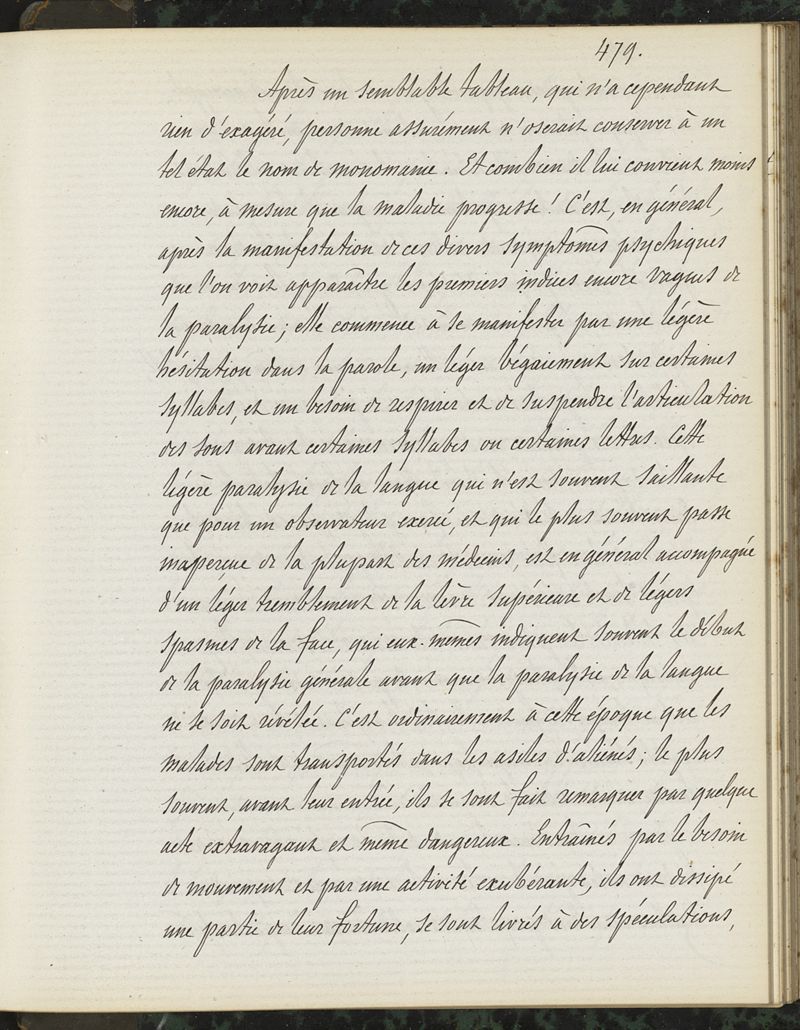 479.
Après un semblable tableau, qui n'a cependant
rien d'exagéré, personne assurément n'oserait conserver à un
tel état le nom de monomanie. Et combien il lui convient moins
encore, à mesure que la maladie progresse! C'est, en général,
après la manifestation de ces divers symptômes psychiques
que l'on voit apparaître les premiers indices encore vagues de
la paralysie; elle commence à se manifester par une légère
hésitation dans la parole, un léger bégaiement sur certaines
syllabes, et un besoin de respirer et de suspendre l'articulation
des sons avant certaines syllabes ou certaines lettres. Cette
légère paralysie de la langue qui n'est souvent saillante
que pour un observateur exercé, et qui le plus souvent passe
inaperçue de la plupart des médecins, est en général accompagnée
d'un léger tremblement de la lèvre supérieure et de légers
spasmes de la face, qui eux-mêmes indiquent souvent le début
de la paralysie générale avant que la paralysie de la langue
ne se soit révélée. C'est ordinairement à cette époque que les
malades sont transportés dans les asiles d'aliénés; le plus
souvent, avant leur entrée, ils se sont fait remarquer par quelque
acte extravagant et même dangereux. Entraînés par le besoin
de mouvement et par une activité exubérante, ils ont dissipé
une partie de leur fortune, se sont livrés à des spéculations,